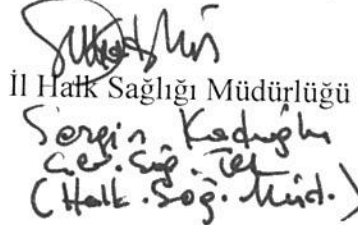 İl Halk Sağlığı Müdürlüğü
Sergin Kadıoğlu
Çev. Sağ. Tek
(Halk. Sağ. Müd.)